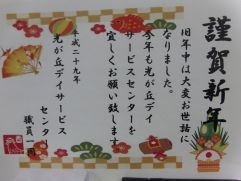 謹賀新年
旧年中は大変お世話に
なりました。
今年も光が丘デイ
サービスセンターを
宜しくお願い致します
平成二十九年
光が丘デイサービス
センター
職員一同